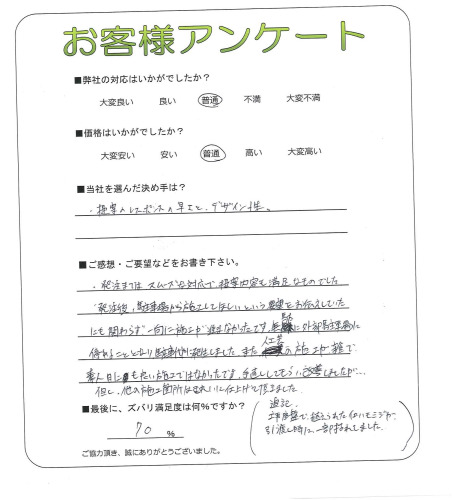 お客様アンケート
■弊社の対応はいかがでしたか？
大変良い 良い 普通 不満 大変不満
■価格はいかがでしたか？
大変安い 安い 普通 高い 大変高い
■当社を選んだ決め手は？
・提案のレスポンスの早さと、デザイン性。
■ご感想・ご要望などをお書き下さい。
・発注まではスムーズな対応で、提案内容も満足なものでした
発注後、駐車場から施工してほしいという要望をお伝えしていた
にも関わらず一向に施工が進まなかったです。に外部駐車場に
停めることとなり駐車代が発生しました。また人工芝の施工が雑で
素人目にも良い施工ではなかったです。手直ししてもらい改善しましたが…
但し、他の施工箇所はきれいに仕上げて頂きました。
■最後に、ズバリ満足度は何％ですか？
70 %
追記
で植えられたイロハモミジが、
引渡し時に、一部折れてました。
ご協力頂き、誠にありがとうございました。